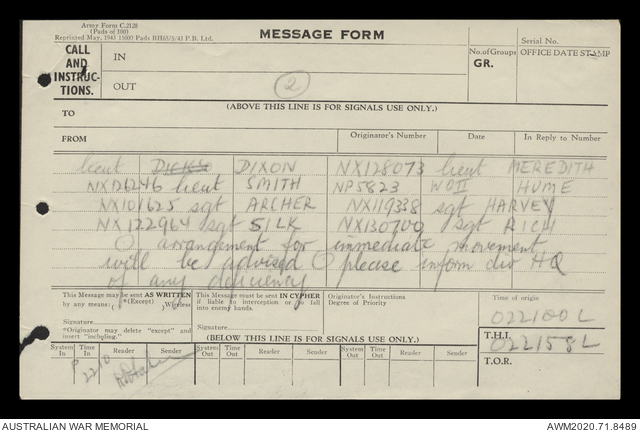 Army Form C.2128
(Pads of 100)
MESSAGE FORM
Serial No.
CALL AND INSTRUC-TIONS.
IN
No. of Groups GR.
OFFICE DATE STAMP
OUT
2
(ABOVE THIS LINE IS FOR SIGNALS USE ONLY.)
TO
FROM
Originator's Number
Date
In Reply to Number
Lieut DIXON NX128073 Lieut MEREDITH
NX126246 Lieut SMITH NP5823 WOII HUME
NX101625 sgt ARCHER NX119338 sgt HARVEY
NX122964 sgt SILK NX130700 sgt RICH
O arrangement for immediate movement
will be advised O please inform div HQ
of any deficiency
This Message may be sent AS WRITTEN by any means. (Except) Wireless
This Message must be sent IN CYPHER if liable to interception or to fall into enemy hands.
Originator's Instructions Degree of Priority
Time of origin
022100L
Signature
*Originator may delete "except" and insert "including."
Signature
(BELOW THIS LINE IS FOR SIGNALS USE ONLY.)
T.H.I.
022158L
T.O.R.
System In
Time In
Reader
Sender
System Out
Time Out
Reader
Sender
System Out
Time Out
Reader
Sender
P 2210
AUSTRALIAN WAR MEMORIAL
AWM2020.71.8489